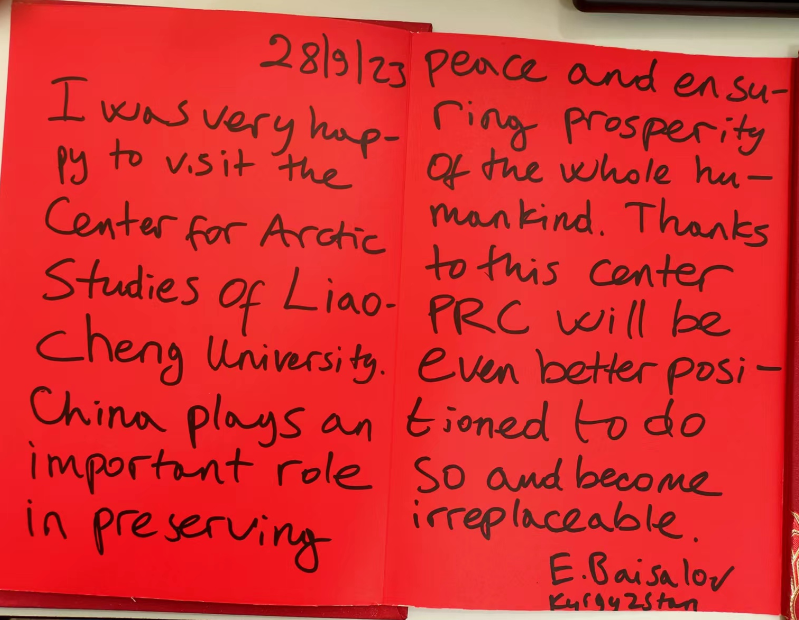 28/9/23
I was very hap-
py to visit the
Center for Arctic
Studies of Liao-
Cheng University.
China plays an
important role
in preserving
peace and ensu-
ring prosperity
of the whole hu-
mankind. Thanks
to this center
PRC will be
even better posi-
tioned to do
so and become
irreplaceable.
E. Baisalov
Kyrgyzstan